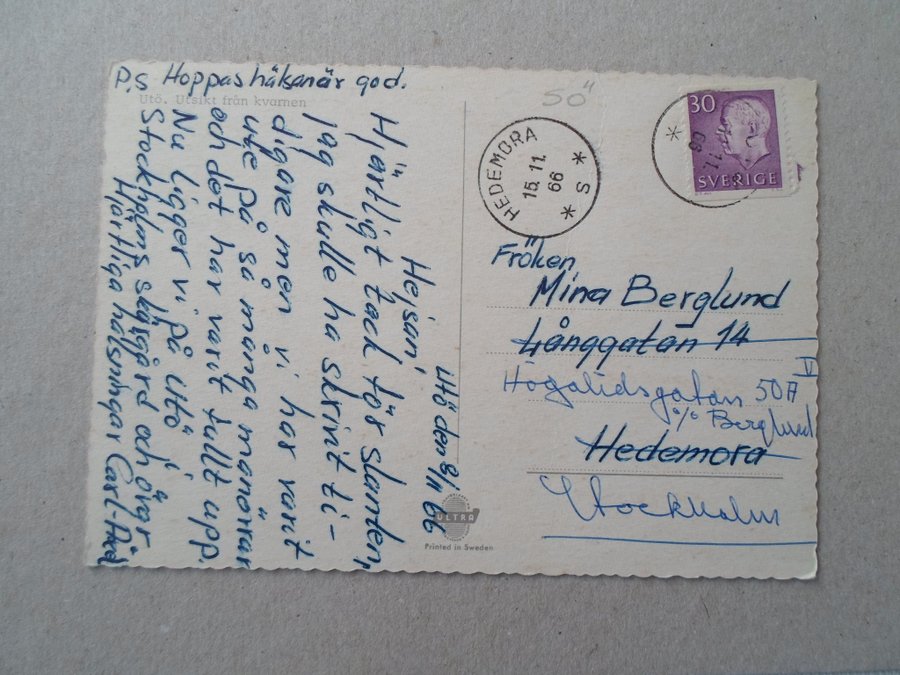 P.S Hoppas hälsan är god.
Utö. Utsikt från kvarnen
Utö den 8/11 66
Hejsan!
Hjärtligt tack för slanten,
jag skulle ha skrivit ti-
digare men vi har varit
ute på så många manövrar
och det har varit fullt upp.
Nu ligger vi på Utö i
Stockholms skärgård och övar
Hjärtliga hälsningar Carl-
SÖ"
HEDEMORA
15.11.
66
* S *
30
SVERIGE
Fröken
Mina Berglund
Långgatan 14
Högalidsgatan 50A V
c/o Berglund
Hedemora
Stockholm
ULTRA
Printed in Sweden